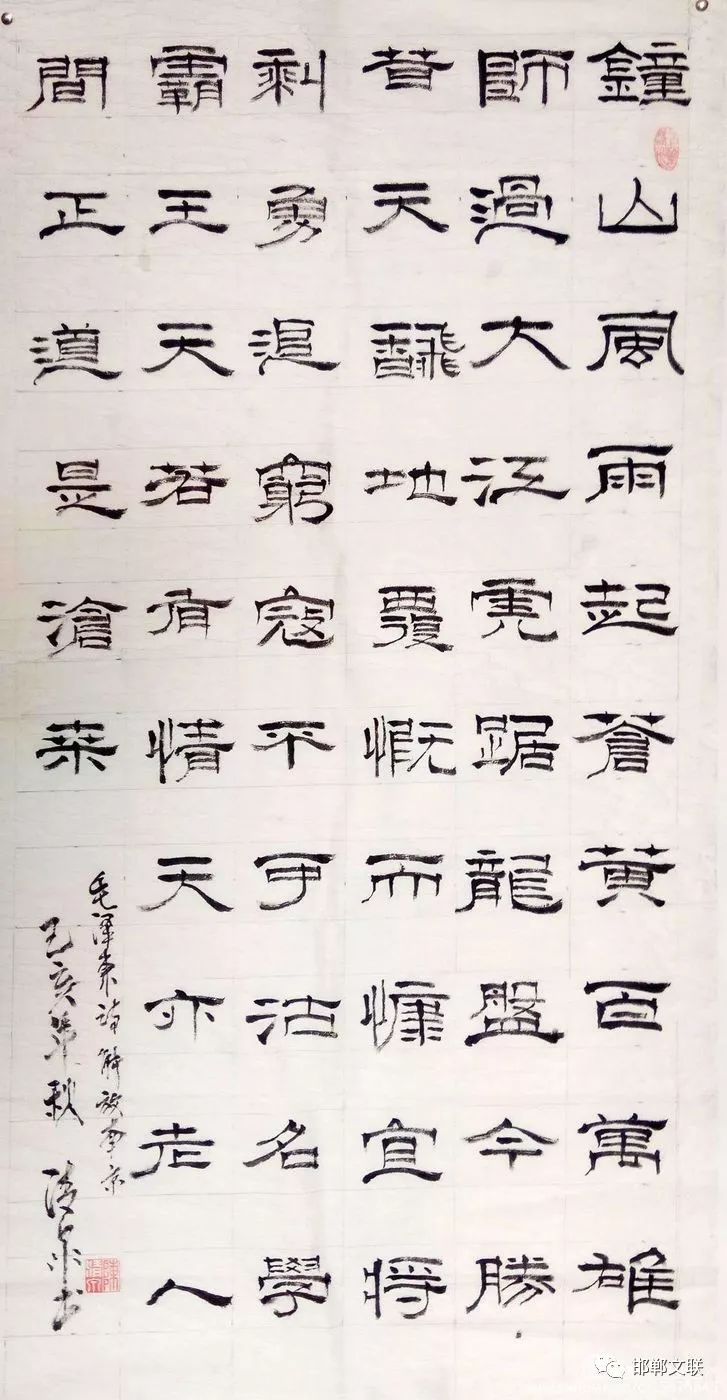 鐘山風雨起蒼黃百萬雄
師過大江虎踞龍盤今勝
昔天飜地覆慨而慷宜將
剩勇追窮寇不可沽名學
霸王天若有情天亦老人
間正道是滄桒
毛澤東詩解放南京
己亥年秋
邯郸文联